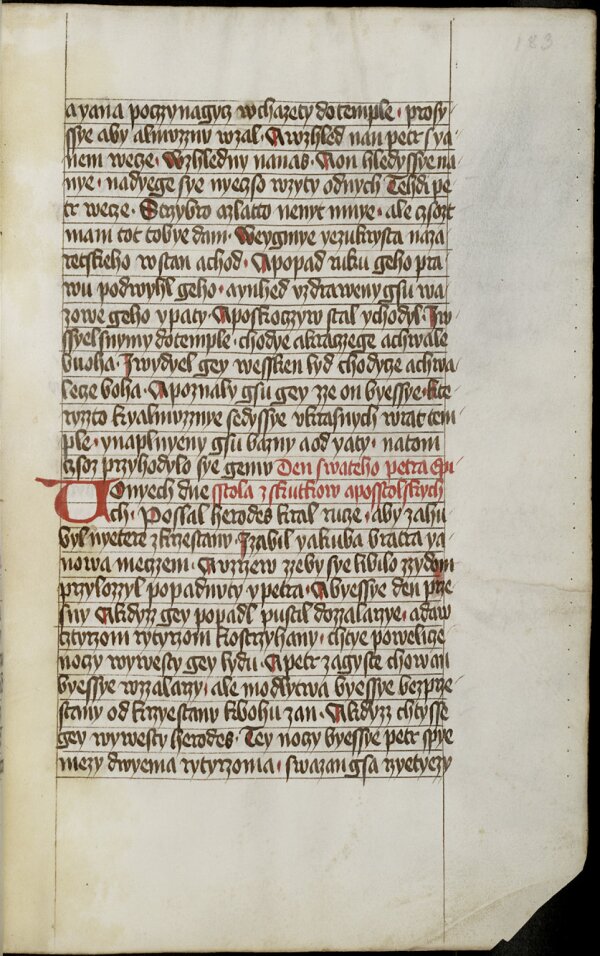 183
a yana poczynagycz wchazety do temple · prosy⸗
ssye aby almuznu wzal · A wzhled nan petr s ya⸗
nem wecze · Wzhledny nanas · A on hledyssye na
nye · nadyege sye nyeczso wzyty odnych Tehdi pe
tr wecze · Strzybro azlatto nenye mnye · ale czsozt
mam tot tobye dam · Weygmye yezukrysta naza
retskeho wstan achod · A popad ruku geho pra
wu podwyhl geho · aynhed vzdraweny gsu wa
zowe geho ypaty · A poskoczyw stal ychodyl · I w⸗
ssyel snymy dotemple · chodye askaczege achwale
buoha · I wydyel gey wessken lyd chodycze achwa⸗
lecze boha · A poznaly gsu gey zze on byessye · kte
ryzzto kyalmuzznye sedyssye vkrasnych wrat tem⸗
ple · ynaplnyeny gsu bazny aod yaty · natom
czsoz przyhodylo sye gemu Den swateho petra epi⸗
Wonyech dne sstola z skutkow aposstolskych
ch · Poslal herodes kral rucze · aby zahu
byl nyetere zkrzestany · Izabil yakuba bratra ya⸗
nowa meczem · A vzrzew zzeby sye libilo zzydom
przylozzyl popadnuty ypetra · A byessye den prze
sny A kdyzz gey popadl pustil dozzalarzye · adaw
cztyrzom rytyrzom kostrzyhany · chtye powelicze
noczy wywesty gey lydu · A petr zagyste chowan
byessye wzzalarzy · ale modlytwa byessye bezprze⸗
stany od krzyestany kbohu zan · A kdyzz chtysse
gey wywesty herodes · Tey noczy byessye petr spye
mezy dwyema rytyrzoma · swazan gsa rzyetyezy